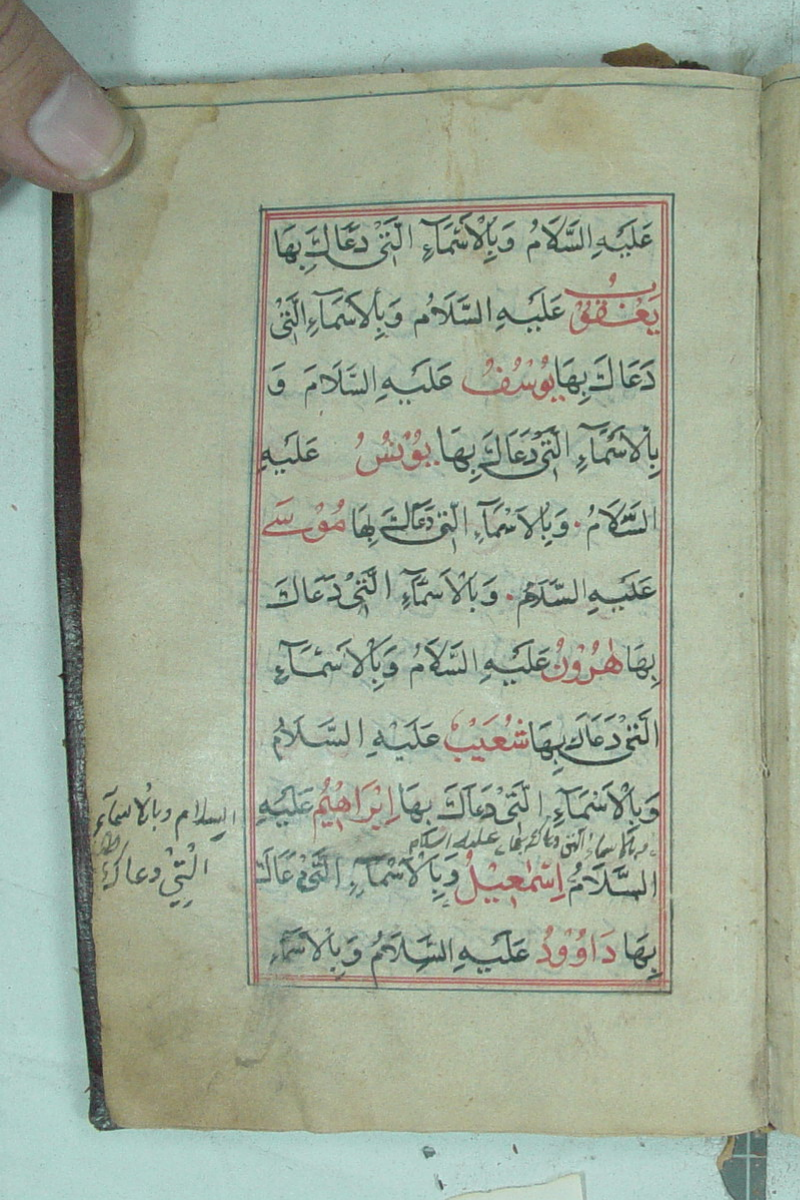 عَلَيْهِ السَّلَامُ وَبِالْاَسْمَآءِ الَّتٖى دَعَاكَ بِهَا
يَعْقُوْبُ عَلَيْهِ السَّلَامُ وَبِالْاَسْمَآءِ الَّتٖى
دَعَاكَ بِهَا يُوْسُفُ عَلَيْهِ السَّلَامَ وَ
بِالْاَسْمَآءِ الَّتٖى دَعَاكَ بِهَا يُوْنُسُ عَلَيْهِ
السَّلَامُ. وَبِالْاَسْمَآءِ الَّتٖى دَعَاكَ بِهَا مُوْسَے
عَلَيْهِ السَّلَامُ. وَبِالْاَسْمَآءِ الَّتٖى دَعَاكَ
بِهَا هٰرُوْنُ عَلَيْهِ السَّلَامُ وَبِالْاَسْمَآءِ
الَّتٖى دَعَاكَ بِهَا شُعَيْبُ عَلَيْهِ السَّلَامُ
وَبِالْاَسْمَآءِ الَّتٖى دَعَاكَ بِهَا اِبْرَاهِيْمُ عَلَيْهِ
وبالاسماء التى دعاك بها عليه السلام
السَّلَامُ اِسْمٰعِيْلُ وَبِالْاَسْمَآءِ الَّتٖى دَعَاكَ
بِهَا دَاوُوْدُ عَلَيْهِ السَّلَامُ وَبِالْاَسْمَآءِ
السلام وبالاسمآء
الَّتِيْ دعاك